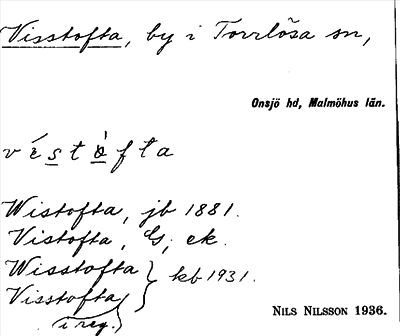 Visstofta, by i Torrlösa sn,
Onsjö hd, Malmöhus län.
véstòfta
Wistofta, jb 1881.
Vistofta, G; ek.
Wisstofta } kb 1931.
Visstofta
i reg.
NILS NILSSON 1936.